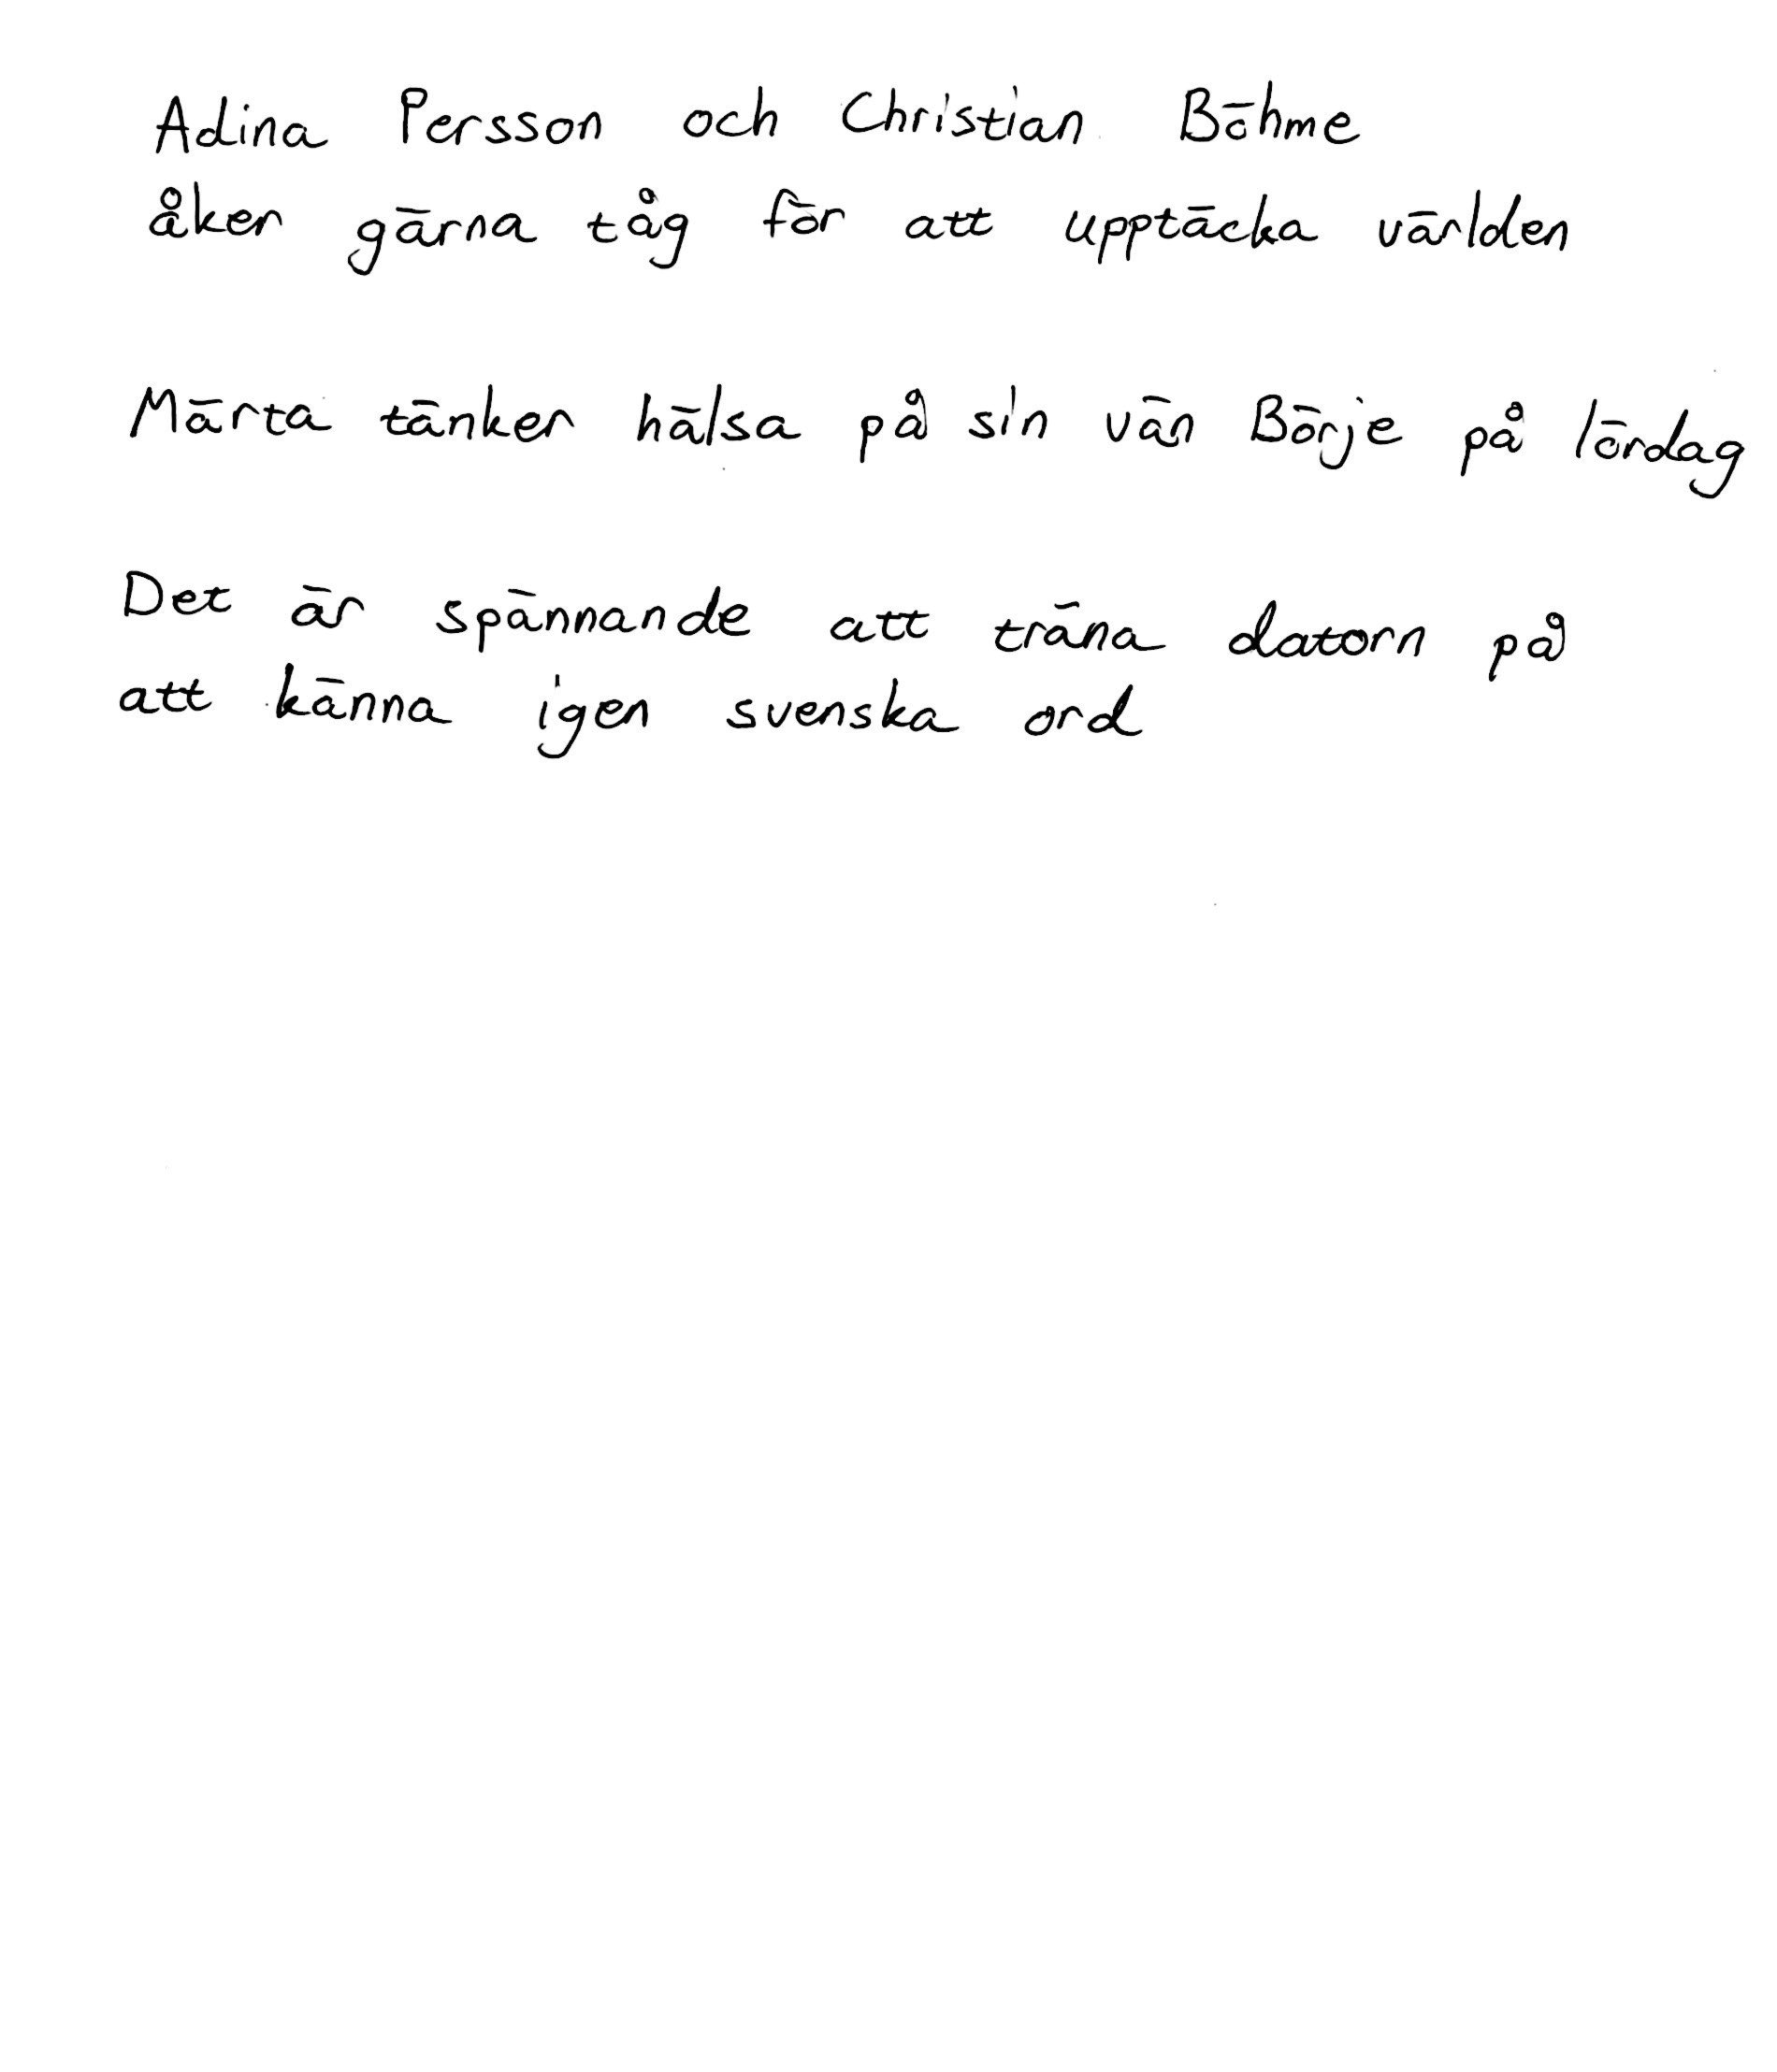 Adina Persson och Christian Böhme
åker gärna tåg för att upptäcka världen
Märta tänker hälsa på sin vän Börje på lördag
Det är spännande att träna datorn på
att känna igen svenska ord